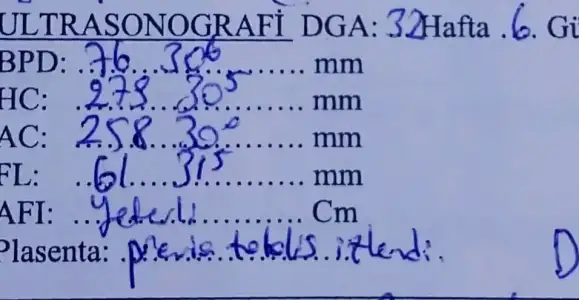 ULTRASONOGRAFİ DGA: 32 Hafta .6. Gü
BPD: 76 30⁶ mm
HC: 273 30⁵ mm
AC: 258 30⁰ mm
FL: 61 31⁵ mm
AFI: Yeterli Cm
Plasenta: previa totalis izlendi.
D